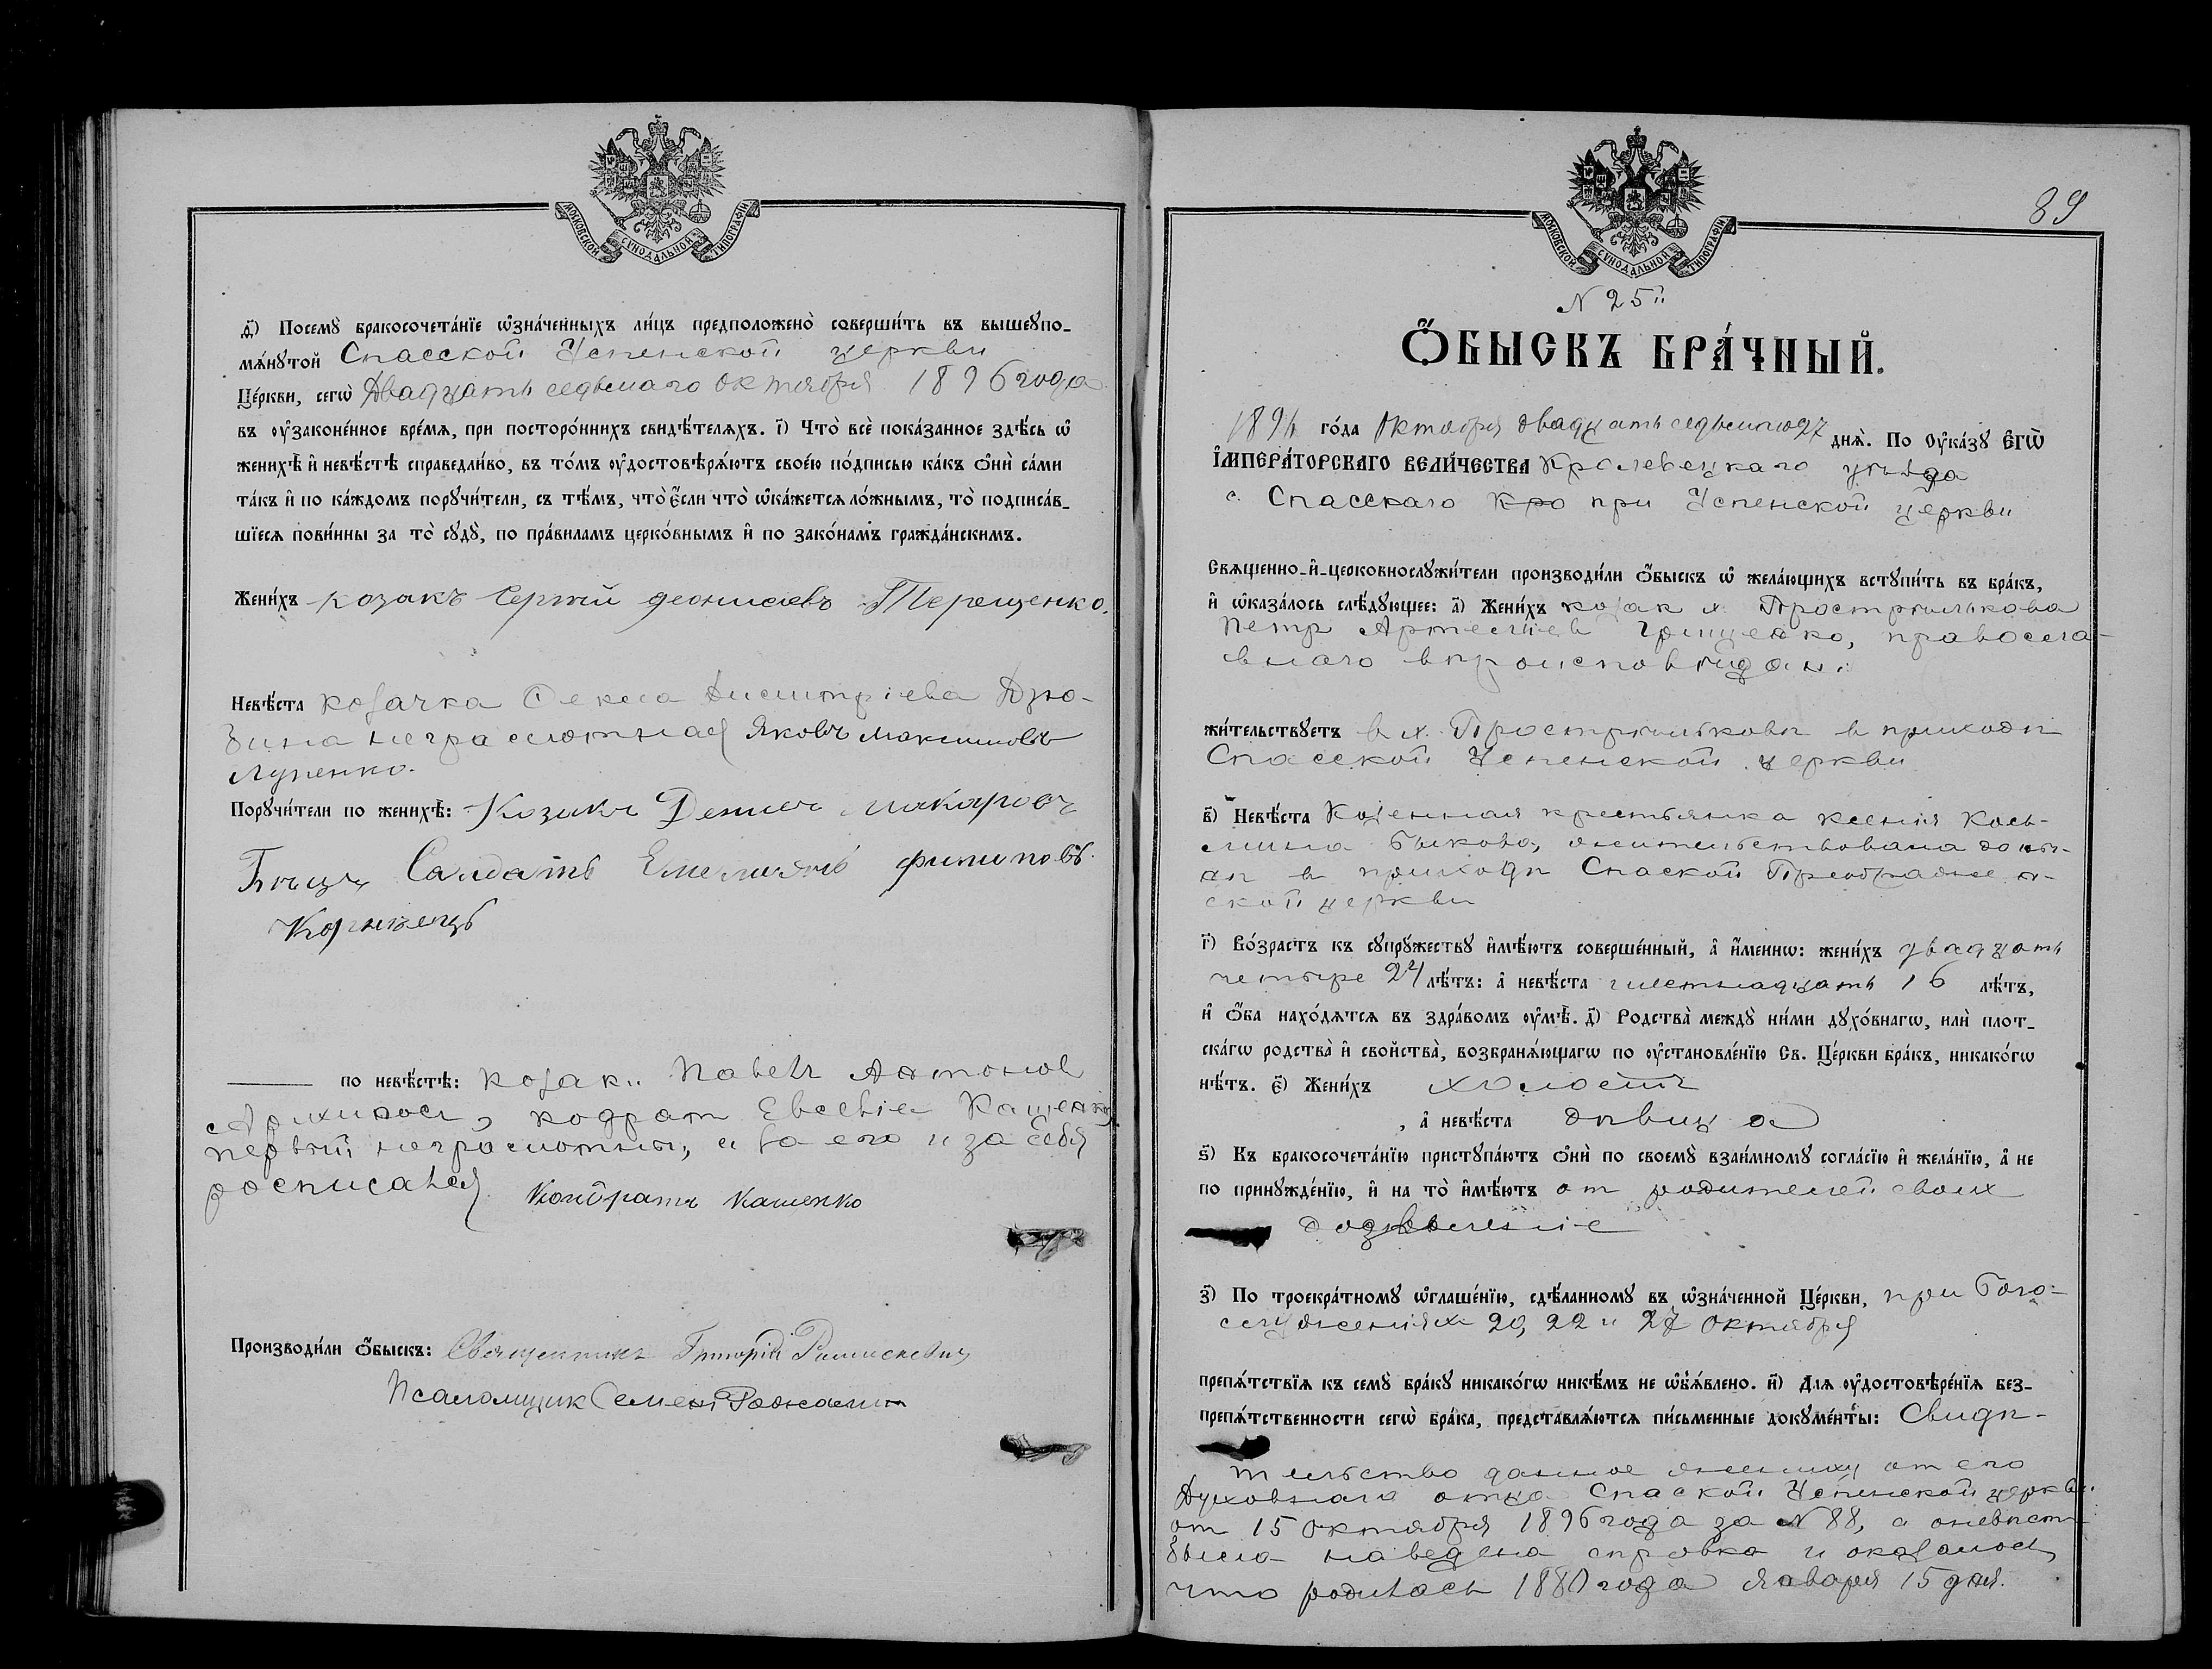 МОСКОВСКОЙ СѴНОДАЛЬНОЙ ТИПОГРАФІИ
ѳ҃) Посемꙋ̀ бракосочета́нїе ѡ҆зна́ченныхъ ли́цъ предположено̀ соверши́ть въ вышеꙋпо-
мѧ́нꙋтой Спасской Успенской церкви
Це́ркви, сегѡ̀ Двадцать седьмаго октября 1896 года
въ ᲂу҆зако́ненное вре́мѧ, при посторо́ннихъ свидѣ́телѧхъ. і҃) Что̀ всѐ пока́занное здѣ́сь ѡ҆
женихѣ̀ и҆ невѣ́стѣ справедли́во, въ то́мъ ᲂу҆достовѣрѧ́ютъ свое́ю по́дписью ка́къ ѻ҆нѝ са́ми
та́къ и҆ по ка́ждомъ порꙋчи́тели, съ тѣ́мъ, что̀ є҆́сли что̀ ѡ҆ка́жетсѧ ло́жнымъ, то̀ подписа́в-
шїесѧ пови́нны за то̀ сꙋдꙋ̀, по пра́виламъ церко́внымъ и҆ по зако́намъ гражда́нскимъ.
Жени́хъ козакъ Сергій Деонисіевъ Терещенко.
Невѣ́ста козачка Фекла Димитріева Дзю-
бина неграмотная Яковъ Максимовъ
Луценко.
Порꙋчи́тели по женихѣ̀: Козакъ Денис Макаровъ
Салдатъ Емелиянъ Филиповъ.
Корниецъ
по невѣ́стѣ: козак.. Павелъ Антонов
кодрат Евсевіе Кащенко
первый неграмотны, а за его и за себя
росписался Кондратъ Кашенко
Производи́ли ѻ҆́быскъ: Священникъ Григорій
Псаломщик Семен
МОСКОВСКОЙ СѴНОДАЛЬНОЙ ТИПОГРАФІИ
89
N 25й
Ѻ҆́БЫСКЪ БРА́ЧНЫЙ.
1896 го́да Октября двадцать седьмаго 27 днѧ̀. По Оу҆ка́зꙋ Є҆ГѠ̀
І҆МПЕРА́ТОРСКАГО ВЕЛИ́ЧЕСТВА Кролевецкаго уѣзда
с. Спасскаго Кро при Успенской церкви
Свѧщенно-и҆-церковнослꙋжи́тели производи́ли ѻ҆́быскъ ѡ҆ жела́ющихъ встꙋпи́ть въ бра́къ,
и҆ ѡ҆каза́лось слѣ́дꙋющее: а҃) Жени́хъ козак х. Прострѣлькова
Петр Артемиев Грищенко, правосла-
внаго вѣроисповѣдан.
жи́тельствꙋетъ в х. Прострѣльковѣ в приходѣ
Спасской Успенской церкви
в҃) Невѣ́ста Козенная крестьянка Ксенія Кось-
мина Быкова, жительствовала до ны-
нѣ в приходѣ Спаской Преображен-
ской церкви
г҃) Во́зрастъ къ сꙋпрꙋ́жествꙋ и҆мѣ́ютъ соверше́нный, а҆ и҆́меннѡ: жени́хъ двадцать
четыре 24 лѣ́тъ: а҆ невѣ́ста шестнадцать 16 лѣ́тъ,
и҆ ѻ҆́ба нахо́дѧтсѧ въ здра́вомъ ᲂу҆мѣ̀. д҃) Родства̀ междꙋ̀ ни́ми дꙋхо́внагѡ, илѝ плот-
скагѡ родства̀ и҆ сво́йства, возбранѧ́ющагѡ по ᲂу҆становле́нїю Св. Це́ркви бра́къ, никако́гѡ
нѣ́тъ. є҃) Жени́хъ холостъ
, а҆ невѣ́ста дѣвица
ѕ҃) Къ бракосочета́нїю пристꙋпа́ютъ ѻ҆нѝ по своемꙋ̀ взаи́мномꙋ согла́сїю и҆ жела́нїю, а҆ не
по принꙋжде́нїю, и҆ на то̀ и҆мѣ́ютъ от родителей своих
дозволеніе
з҃) По троекра́тномꙋ ѡ҆глаше́нїю, сдѣ́ланномꙋ въ ѡ҆зна́ченной Це́ркви, при Бого-
служеніях 20, 22 и 27 Октября
препѧ́тствїѧ къ семꙋ̀ бра́кꙋ никако́гѡ никѣ́мъ не ѡ҆б̾ѧ́влено. и҃) Длѧ ᲂу҆достовѣре́нїѧ без-
препѧ́тственности сегѡ̀ бра́ка, представлѧ́ютсѧ пи́сьменные докꙋме́нты: Свидѣ-
тельство данное жениху от его
Духовнаго отца Спаской Успенской церкви.
от 15 Октября 1896 года за № 88, а о невѣсте
была наведена справка и оказалось,
что родилась 1880 года Января 15 дня.